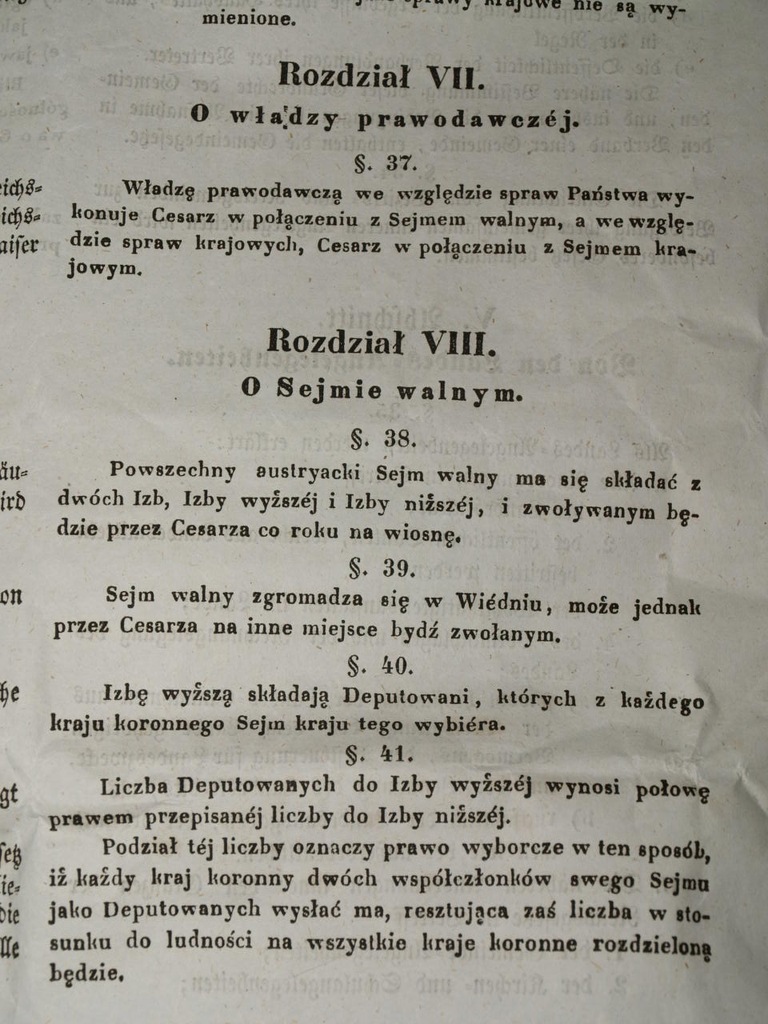 sprawy krajowe nie są wy-
mienione.
Rozdział VII.
O władzy prawodawczéj.
§. 37.
Władzę prawodawczą we względzie spraw Państwa wy-
konuje Cesarz w połączeniu z Sejmem walnym, a we wzglę-
dzie spraw krajowych, Cesarz w połączeniu z Sejmem kra-
jowym.
Rozdział VIII.
O Sejmie walnym.
§. 38.
Powszechny austryacki Sejm walny ma się składać z
dwóch Izb, Izby wyższéj i Izby niższéj, i zwoływanym bę-
dzie przez Cesarza co roku na wiosnę.
§. 39.
Sejm walny zgromadza się w Wiédniu, może jednak
przez Cesarza na inne miejsce bydź zwołanym.
§. 40.
Izbę wyższą składają Deputowani, których z każdego
kraju koronnego Sejm kraju tego wybiéra.
§. 41.
Liczba Deputowanych do Izby wyższéj wynosi połowę
prawem przepisanéj liczby do Izby niższéj.
Podział téj liczby oznaczy prawo wyborcze w ten sposób,
iż każdy kraj koronny dwóch współczłonków swego Sejmu
jako Deputowanych wysłać ma, resztująca zaś liczba w sto-
sunku do ludności na wszystkie kraje koronne rozdzieloną
będzie.